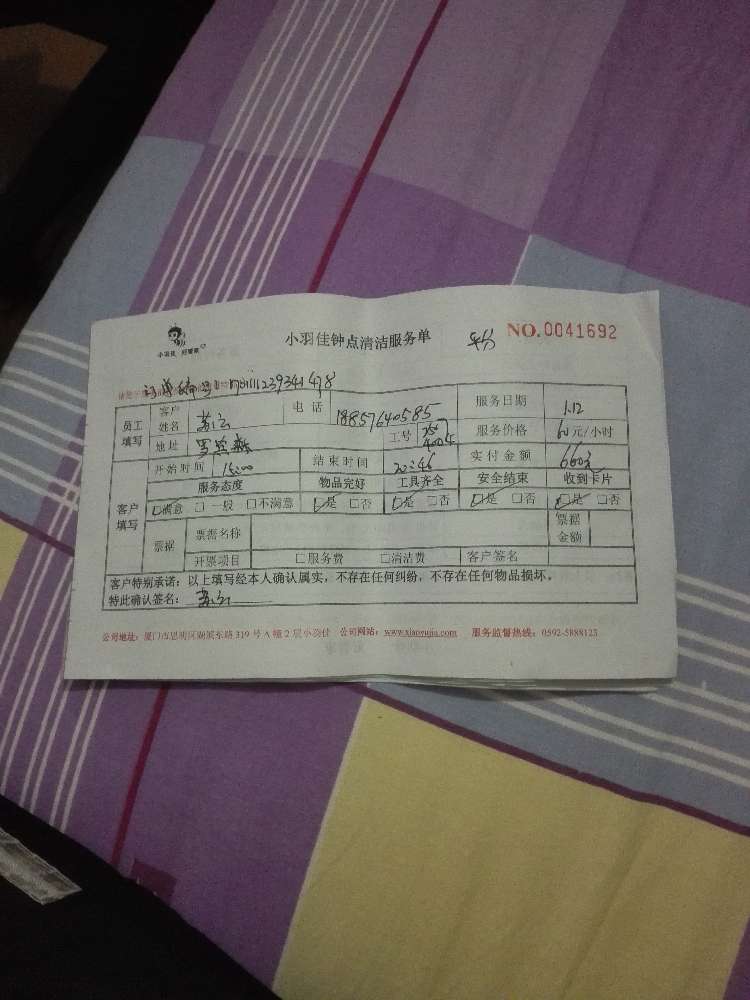 小羽佳钟点清洁服务单 NO.0041692
小羽佳 好管家
订单编号:
员工填写 客户姓名 苏云 电话 18857640585 服务日期 1.12
地址 工号 服务价格 60元/小时
开始时间 15:00 结束时间 20:46 实付金额
客户填写 服务态度 物品完好 工具齐全 安全结束 收到卡片
☑满意 □一般 □不满意 ☑是 □否 ☑是 □否 ☑是 □否 ☑是 □否
票据 票据名称 票据金额
开票项目 □服务费 □清洁费 客户签名
客户特别承诺:以上填写经本人确认属实,不存在任何纠纷,不存在任何物品损坏。
特此确认签名: 苏云
公司地址:厦门市思明区湖滨东路319号A幢2层小羽佳 公司网站:www.xiaoyujia.com 服务监督热线:0592-5888123